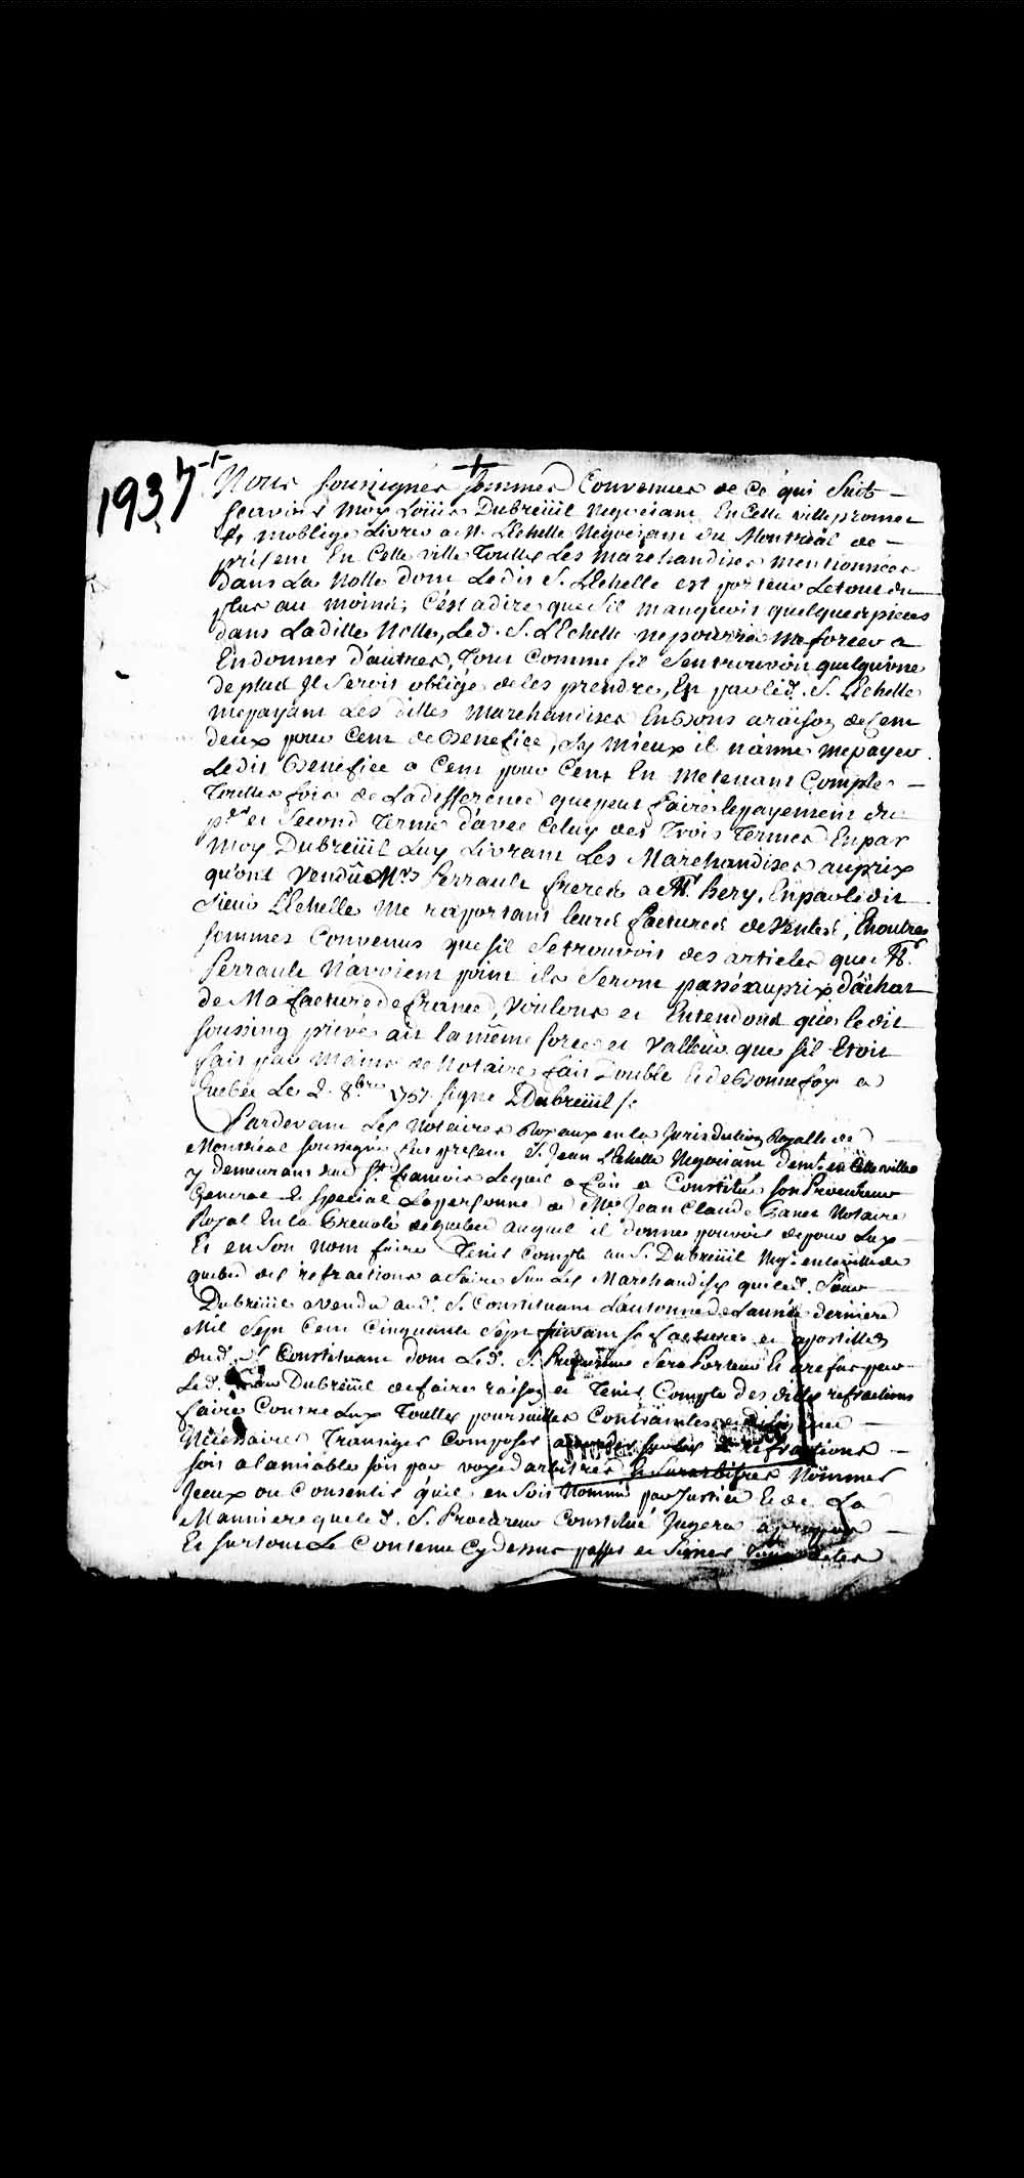 1937
Nous soussignés sommes Convenues de Ce qui Suit
scavoir Moy Loüis Dubreüil Negociant En Cette ville promet
Et moblige Livrer a Mr. LEchelle Negociant du Montréal de
présent En Cette ville Touttes Les marchandises mentionnées
dans La Notte dont Ledit S. LEchelle est porteur Le tout du
plus au moins, C'est adire que sil manquoit quelques pieces
dans Laditte Notte, Led. S. LEchelle ne pourra me forcer a
En donner d'autres, Tout Comme sil sen trouvoit quelquune
de plus Il seroit obligé de les prendre, En par led. S. LEchelle
me payant Les dittes Marchandises En Bons a raison de Cent
deux pour Cent de Benefice, Sy mieux il n'aime me payer
Ledit Benefice a Cent pour Cent En me tenant Compte
Touttes fois de La difference que peut faire le payement du
pr. et Second Terme d'avec Celuy des Trois Termes En par
moy Dubreüil Luy Livrant Les Marchandises au prix
qu'ont Vendû Mrs Perrault freres a Mr. hery, En par ledit
Sieur LEchelle Me raportant leurs factures de Ventes, En outre
sommes Convenus que sil se trouvoit des articles que Mr.
Perrault N'avoient point ils seront passé au prix d'achat
de Ma facture de france, Voulons et Entendons que le dit
soussing privé ait la même force et Valleur que sil Etoit
fait par Mains de Notaire, fait Double Et de Bonne foy a
Quebec Le 2. 8bre 1757. signe LDubreüil /.
Pardevant Les Notaires Royaux en la Jurisdiction Royalle de
Montréal soussignés fut présent S. Jean LEchelle Negociant demt. en Cette ville
y demeurant rue St. francois Lequel a fait et Constitué son Procureur
General Et special La personne de Me Jean Claude Panet Notaire
Royal En la Prevoté de quebec auquel il donne pouvoir de pour Luy
Et en son nom faire Tenir Compte au S. Dubreüil Negt. en la ville de
quebec des refractions a faire sur Les Marchandises que led. Sieur
Dubreüil a vendu aud. S. Constituant L'automne de L'année derniere
Mil Sept Cent Cinquante Sept suivant sa facture et apostilles
dud. S. Constituant dont Led. S. Procureur sera Porteur Et a refus par
Led. Sieur Dubreüil de faire raison et Tenir Compte des dittes refractions
faire Contre Luy Touttes poursuittes Contraintes et diligence
Nécessaires Transiger Composer accorder sur les refractions
soit a lamiable soit par voye d'arbitres Et Surarbitres Nommer
Iceux ou Consentir qu'il en soit Nommé par Justice Et de La
Manniere que led. S. Procureur Constitué Jugera apropos
Et sur tout Le Contenu Cy dessus passer et signer Tous actes